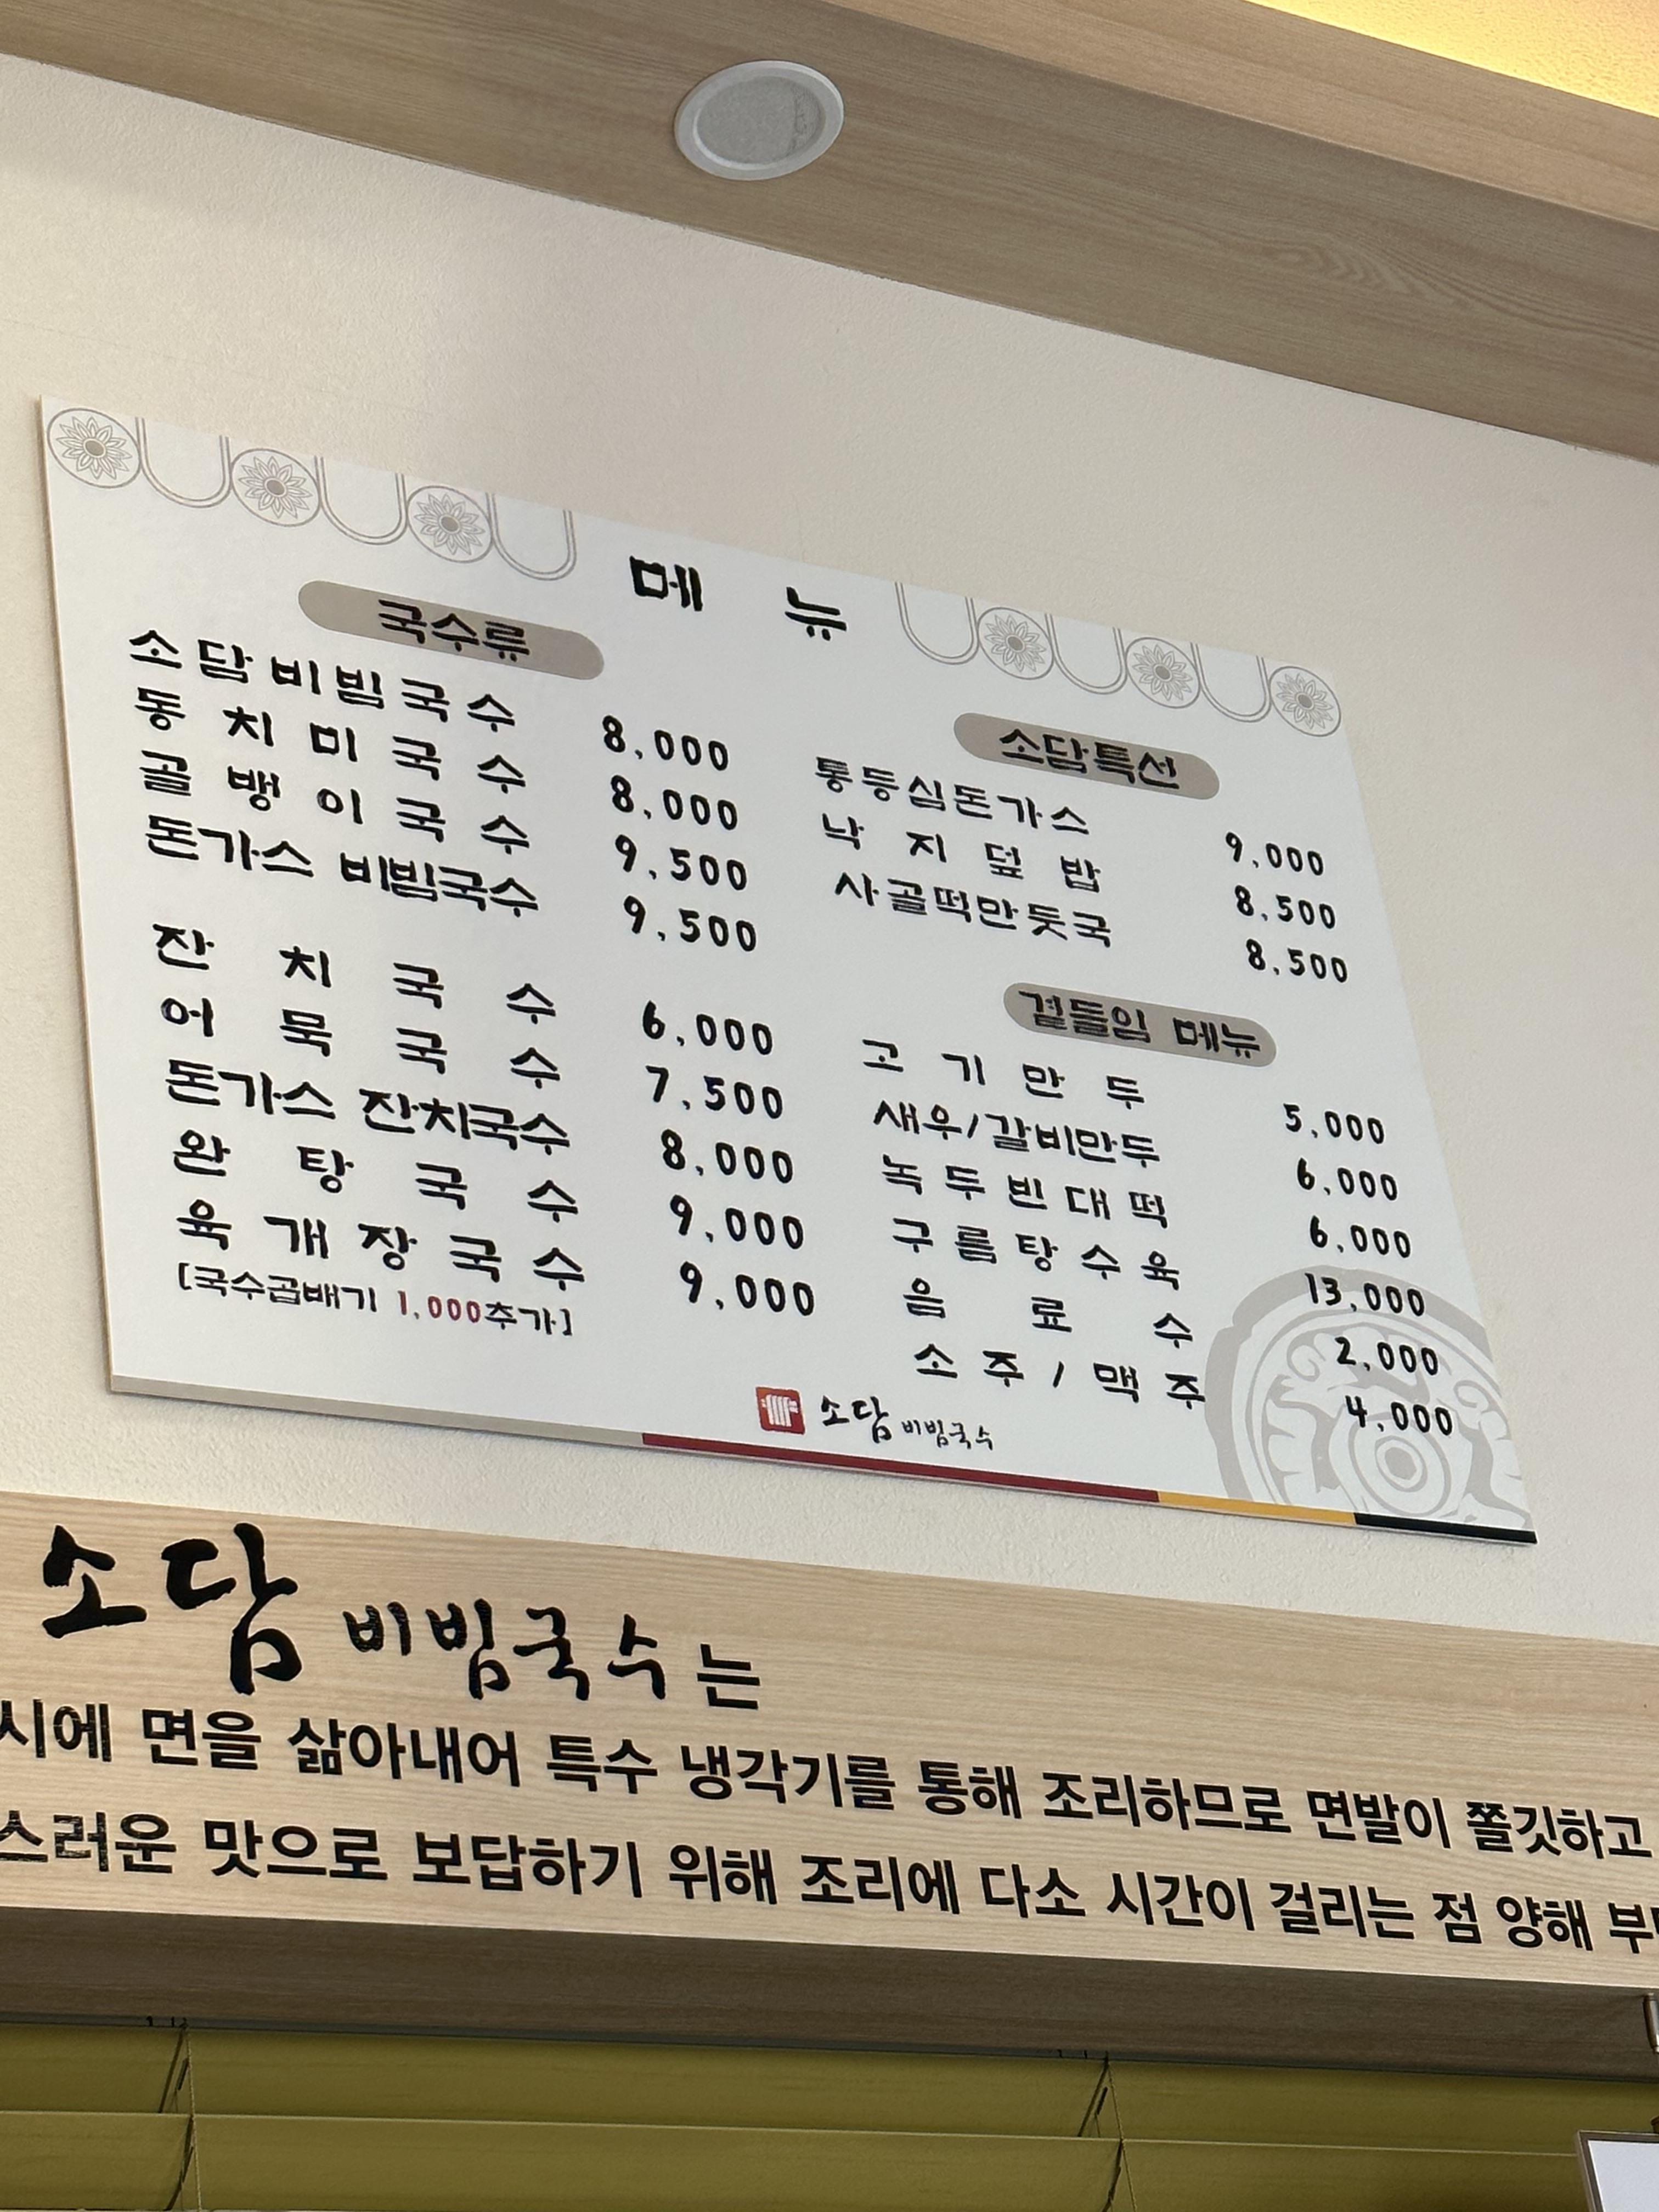 메뉴
국수류
소담비빔국수 8,000
동치미국수 8,000
골뱅이국수 9,500
돈가스 비빔국수 9,500
잔치국수 6,000
어묵국수 7,500
돈가스 잔치국수 8,000
완탕국수 9,000
육개장국수 9,000
[국수곱배기 1,000추가]
소담특선
통등심돈가스 9,000
낙지덮밥 8,500
사골떡만둣국 8,500
곁들임 메뉴
고기만두 5,000
새우/갈비만두 6,000
녹두빈대떡 6,000
구름탕수육 13,000
음료수 2,000
소주/맥주 4,000
소담 비빔국수
소담 비빔국수는
시에 면을 삶아내어 특수 냉각기를 통해 조리하므로 면발이 쫄깃하고
스러운 맛으로 보답하기 위해 조리에 다소 시간이 걸리는 점 양해 부